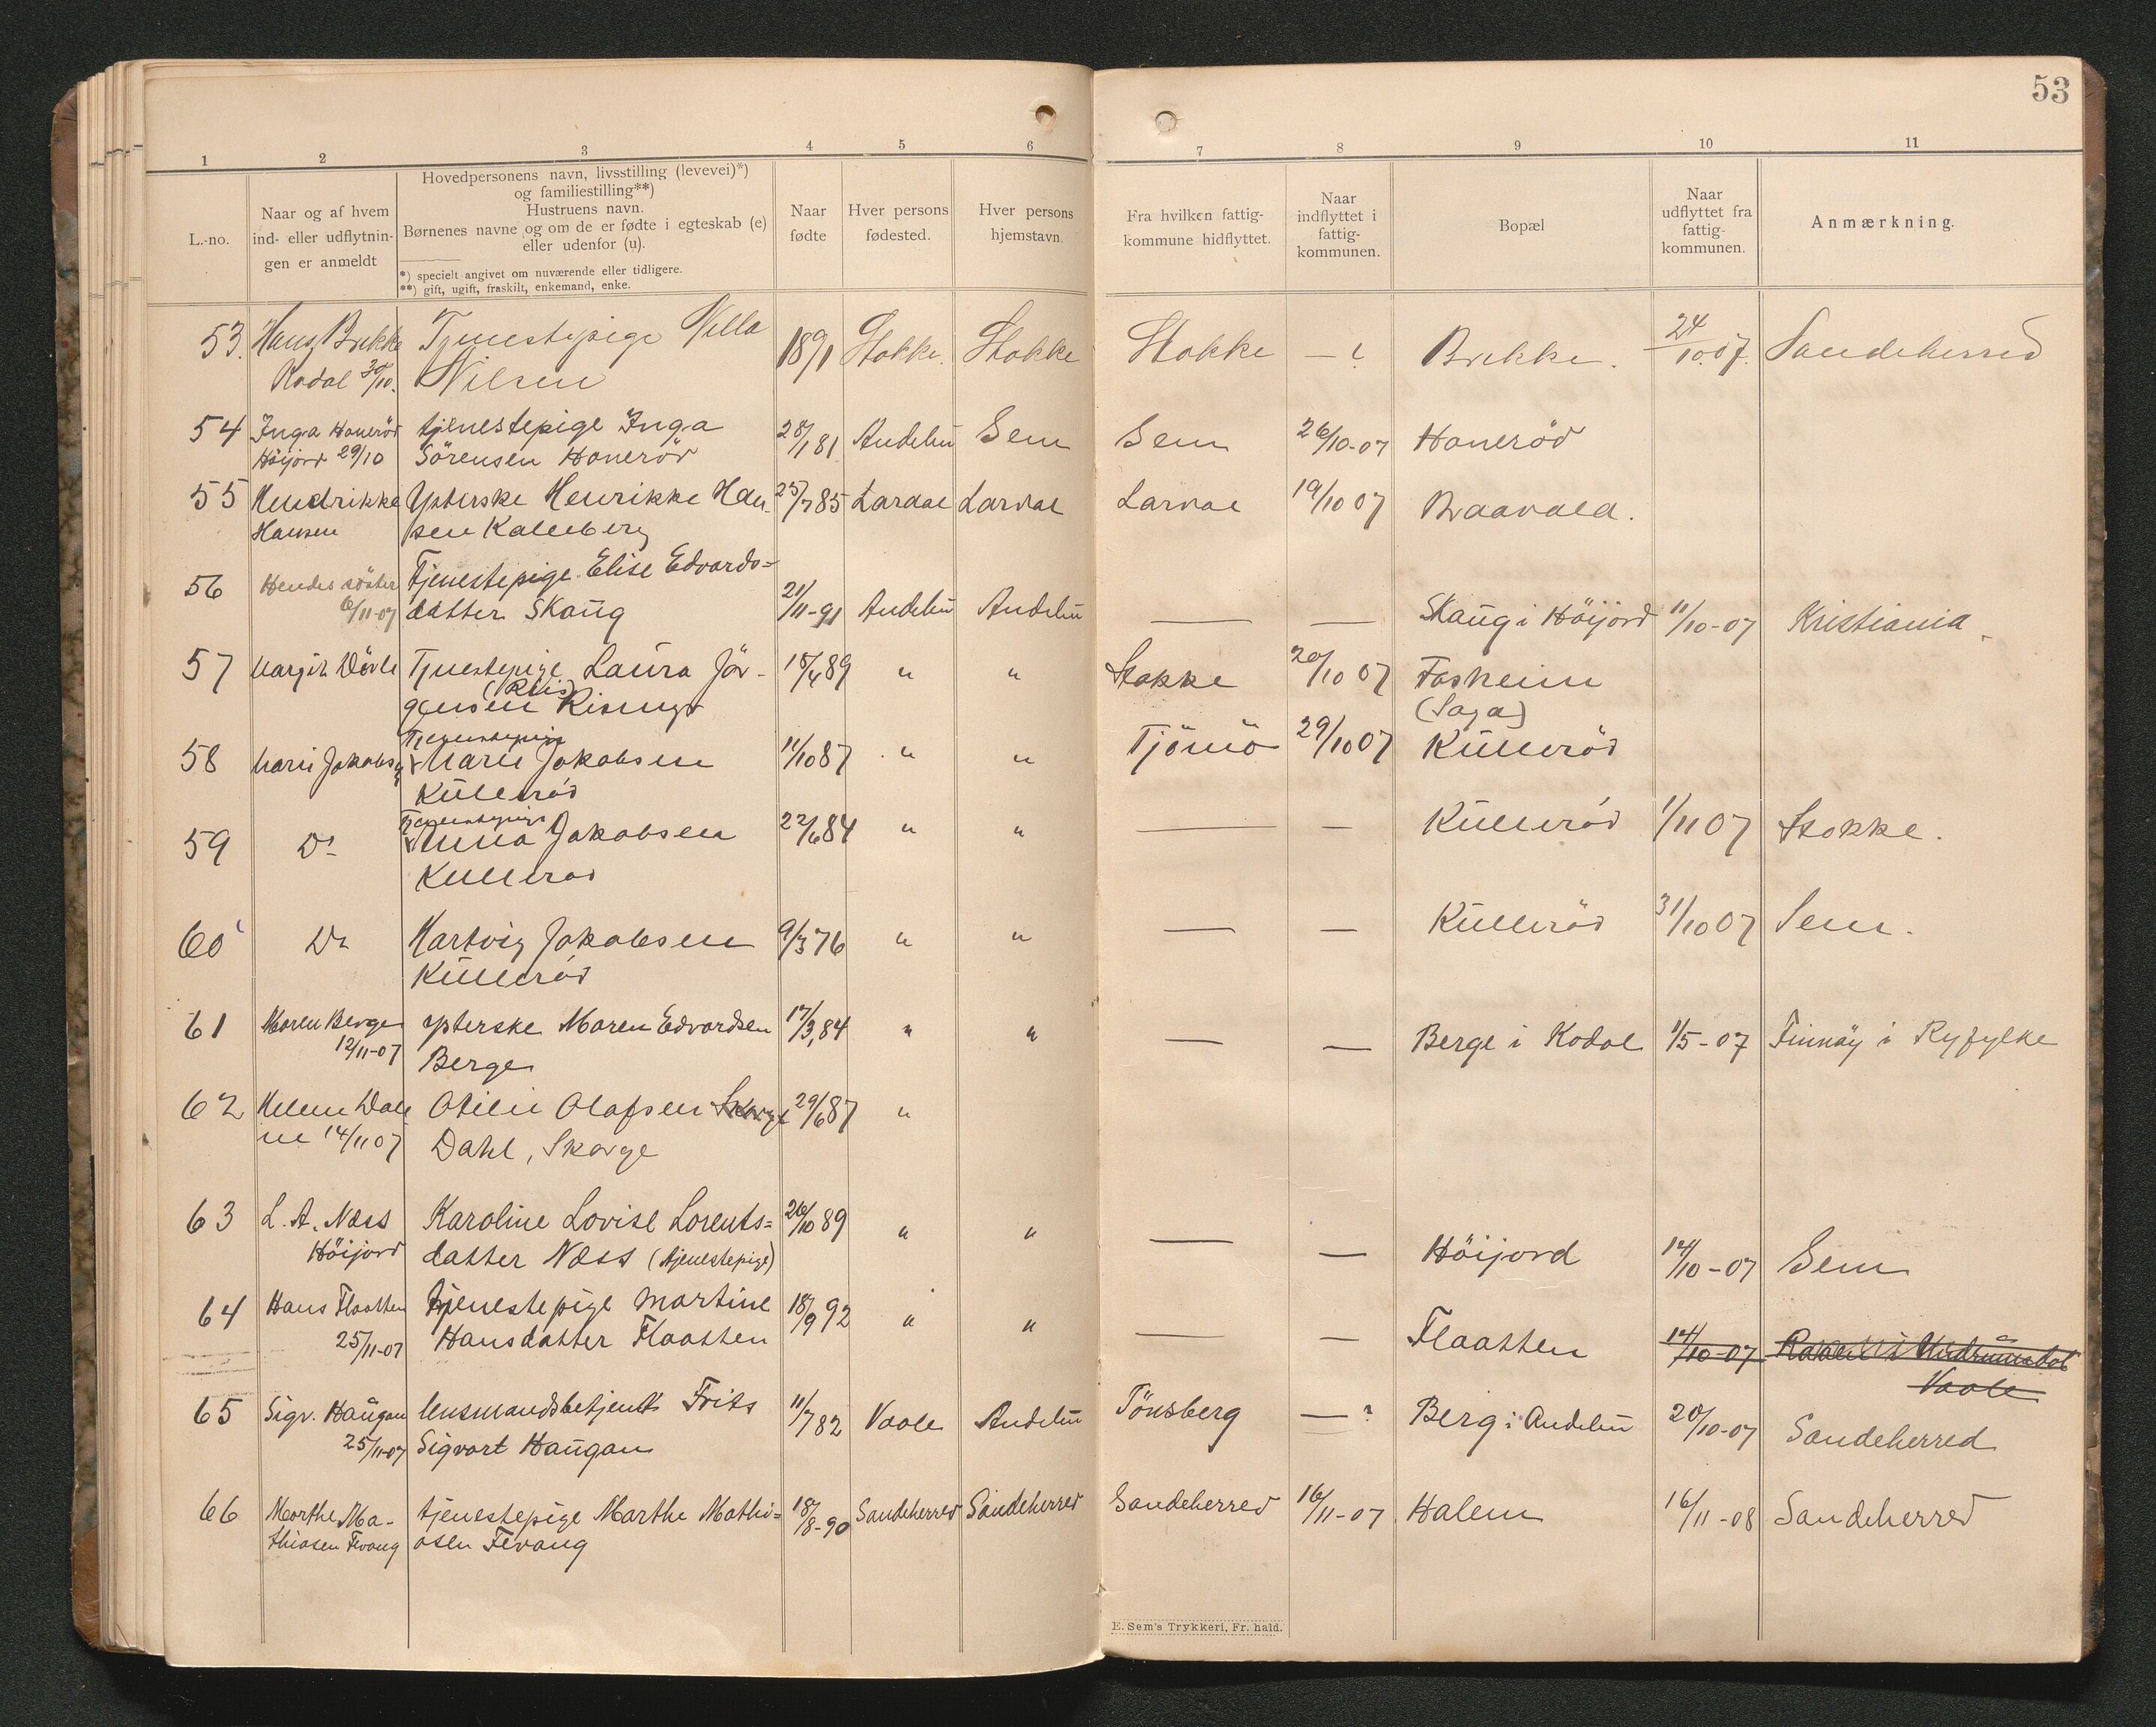 53
1 2 3 4 5 6 7 8 9 10 11
L.-no.
Naar og af hvem
ind- eller udflytnin-
gen er anmeldt
Hovedpersonens navn, livsstilling (levevei)*)
og familiestilling**)
Hustruens navn.
Børnenes navne og om de er fødte i egteskab (e)
eller udenfor (u).
*) specielt angivet om nuværende eller tidligere.
**) gift, ugift, fraskilt, enkemand, enke.
Naar
fødte
Hver persons
fødested.
Hver persons
hjemstavn.
Fra hvilken fattig-
kommune hidflyttet.
Naar
indflyttet i
fattig-
kommunen.
Bopæl
Naar
udflyttet fra
fattig-
kommunen.
Anmærkning.
53. Hans Brekke Tjenestepige Villa 1891 Stokke. Stokke Stokke — ? Brekke. 24/10.07. Sandeherred
Kodal 30/10. Nilsen
54 Inga Honerød tjenestepige Inga 28/1 81 Andebu Sem Sem 26/10-07 Honerød
Höijord 29/10 Sörensen Honerød
55 Hendrikke Ypterske Henrikke Han- 25/7 85 Lardal Lardal Lardal 19/10 07 Braavald.
Hansen sen Kalleberg
56 Hendes söster Tjenestepige Elise Edvards=
6/11-07 datter Skaug 21/11-91 Andebu Andebu — — Skaug i Höijord 11/10-07 Kristiania
57 Margit Dövle Tjenestepige Laura Jör- 18/4 89 " " Stokke 20/10 07 Fosheim
(Riis)
gensen Risings (Saga)
Tjenestepige
58 Marie Jakobsen Marie Jakobsen 11/10 87 " " Tjömö 29/10 07 Küllerød
Küllerød
Tjenestepige
59 Do Anna Jakobsen 22/6 84 " " — — Küllerød 1/11 07 Stokke.
Kullerød
60 Do Hartvig Jakobsen 9/3 76 " " — — Küllerød 31/10 07 Sem.
Küllerød
61 Maren Berge ypterske Maren Edvardsen 17/3 84 " " — — Berge i Kodal 1/5-07 Finnöy i Ryfylke
12/11-07 Berge
62 Otilie Olafsen Skorge 29/6 87 "
14/11 07 Dahl, Skorge
63 L. A. Næss Karoline Lovise Lorents= 26/10 89 " " — — Höijord 14/10-07 Sem
Höijord datter Næss (tjenestepige)
64 Hans Flaatten tjenestepige Martine 18/9 92 " " — — Flaatten 14/10-07
25/11-07 Hansdatter Flaatten Vaale
65 Sigv. Haugan lensmandsbetjent Frits 11/7 82 Vaale Andebu Tönsberg — ? Berg i Andebu 20/10-07 Sandeherred
25/11-07 Sigvart Haugan
66 Marthe Ma- tjenestepige Marthe Mathi= 18/8-90 Sandeherred Sandeherred Sandeherred 16/11-07 Halem 16/11-08 Sandeherred
thiasen Fevang asen Fevang
E. Sem's Trykkeri, Fr. hald.